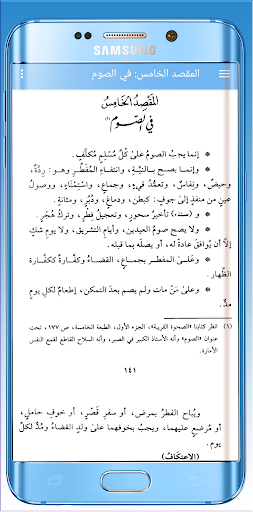 SAMSUNG
المقصد الخامس: في الصوم
المَقْصِدُ الخَامِسُ
في الصَّوم (١)
* إنما يجبُ الصومُ علىٰ كُلِّ مُسْلِمٍ مُكلَّفٍ.
* وإنما يصح بـالنيَّـةِ، وانتفـاءِ المُفَطِّـرِ وهـو: رِدَّةٌ،
وحيضٌ، ونِفاسٌ، وتعمُّدُ قيءٍ، وجماع، واستِمْنَاء، ووصولُ
عينٍ من منفذٍ إلىٰ جوفٍ: كبطنٍ، ودماغٍ، ودُبُرٍ، ومثانة.
* (سننه) تأخيرُ سحورٍ، وتعجيلُ فِطْرٍ، وتركُ هُجْرٍ.
* ولا يصح صومُ العيدين، وأيام التشريق، ولا يوم شكٍ
إلاَّ أن يُوافقَ عادةً له، أو يصلَه بما قبله.
* وعَلَـى المفطـر بجمـاع، القضـاءُ وكفَّـارةٌ ككفَّـارة
الظِّهار.
* وعلى مَنْ مات ولم يصم بعدَ التمكن، إطعامٌ لكلِ يومٍ
مدٌّ.
(١) انظر كتابنا «الصحوة القريبة»، الجزء الأول، الطبعة الخامسة، ص ١٧٧، تحت
عنوان «الصوم» وأنه الأستاذ الكبير في الصبر، وأنه السلاح القاطع لقمع النفس
الأمارة.
١٤١
ويُباح الفطرُ بمرضٍ، أو سفرِ قَصْرٍ، أو خوفِ حاملٍ،
أو مُرضعٍ عليهما، ويجبُ بخوفهما علىٰ ولدٍ القضاءُ ومُدٌّ لكلِّ
يوم.
(الاعتِكَافُ)